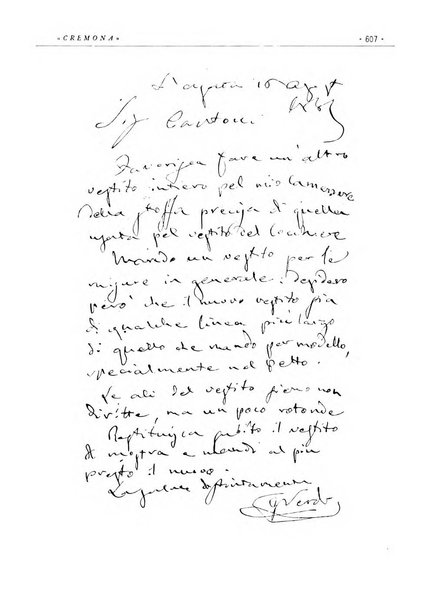 « CREMONA »
- 607 -
S'Agata 10 Agost
Sig
Favorisca fare un'altro
vestito intiero pel mio
della stoffa precisa di quella
usata pel vestito del cocchiere
Mando un vestito per le
misure in generale: desidero
però che il nuovo vestito sia
di qualche linea più largo
di quello che mando per modello,
specialmente nel petto.
Le ali del vestito sieno non
diritte, ma un poco rotonde
Restituisca subito il vestito
di mostra e mandi al più
presto il nuovo.
La saluto distintamente
G Verdi